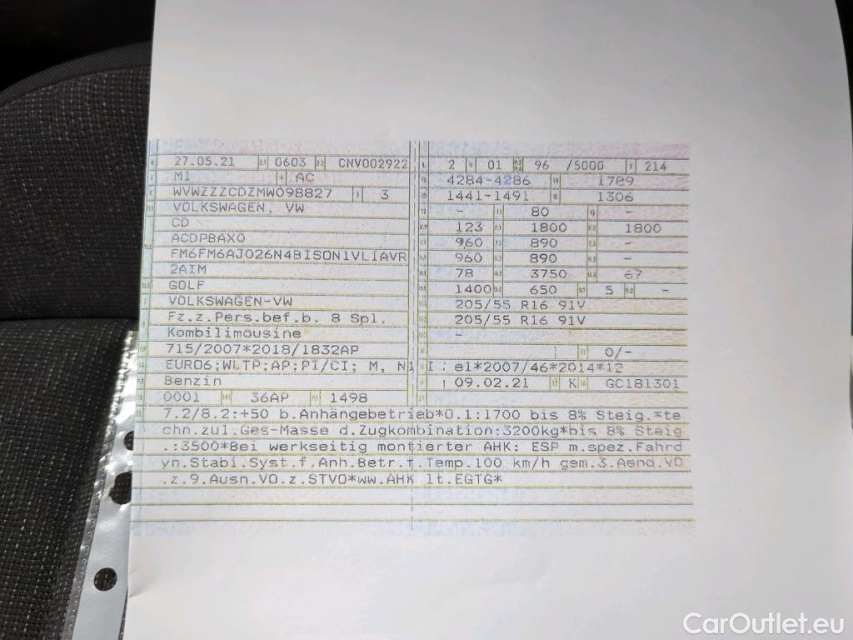 27.05.21 0603 CNV002922 2 01 96 /5000 214
M1 AC 4284-4286 1789
WVWZZZCDZMW098827 3 1441-1491 1306
VOLKSWAGEN, VW - 80 -
CD 123 1800 1800
ACDPBAX0 960 890 -
FM6FM6AJ026N4BISON1VLIAVR 960 890 -
2AIM 78 3750 67
GOLF 1400 650 5 -
VOLKSWAGEN-VW 205/55 R16 91V
Fz.z.Pers.bef.b. 8 Spl. 205/55 R16 91V
Kombilimousine -
715/2007*2018/1832AP 0/-
EURO6;WLTP;AP;PI/CI; M, N1 I e1*2007/46*2014*12
Benzin 09.02.21 K GC181301
0001 36AP 1498
7.2/8.2:+50 b.Anhängebetrieb*O.1:1700 bis 8% Steig.*te
chn.zul.Ges-Masse d.Zugkombination:3200kg*bis 8% Steig
.:3500*Bei werkseitig montierter AHK: ESP m.spez.Fahrd
yn.Stabi.Syst.f.Anh.Betr.f.Temp.100 km/h gem.3.Aend.VO
.z.9.Ausn.VO.z.STVO*ww.AHK lt.EGTG*
CarOutlet.eu